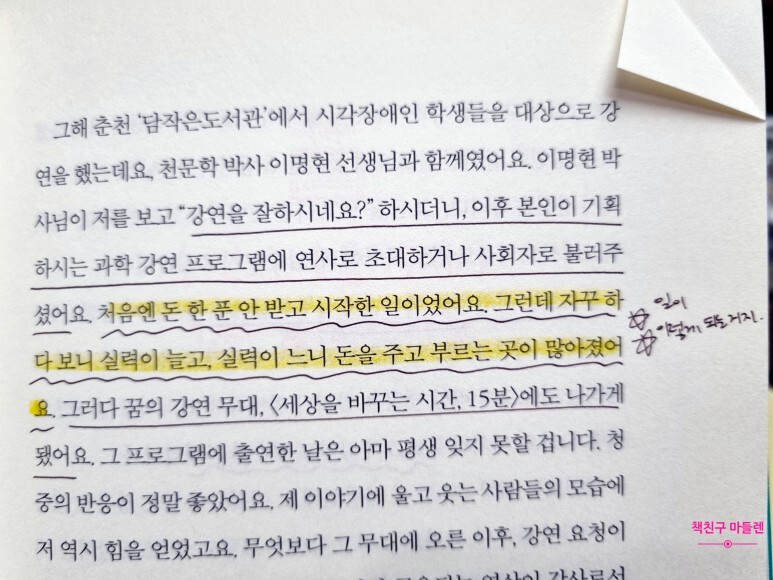 그해 춘천 ‘담작은도서관’에서 시각장애인 학생들을 대상으로 강
연을 했는데요, 천문학 박사 이명현 선생님과 함께였어요. 이명현 박
사님이 저를 보고 “강연을 잘하시네요?” 하시더니, 이후 본인이 기획
하시는 과학 강연 프로그램에 연사로 초대하거나 사회자로 불러주
셨어요. 처음엔 돈 한 푼 안 받고 시작한 일이었어요. 그런데 자꾸 하
다 보니 실력이 늘고, 실력이 느니 돈을 주고 부르는 곳이 많아졌어
요. 그러다 꿈의 강연 무대, 〈세상을 바꾸는 시간, 15분〉에도 나가게
됐어요. 그 프로그램에 출연한 날은 아마 평생 잊지 못할 겁니다. 청
중의 반응이 정말 좋았어요. 제 이야기에 울고 웃는 사람들의 모습에
저 역시 힘을 얻었고요. 무엇보다 그 무대에 오른 이후, 강연 요청이
일이
이렇게 되는 거지.
책친구 마들렌